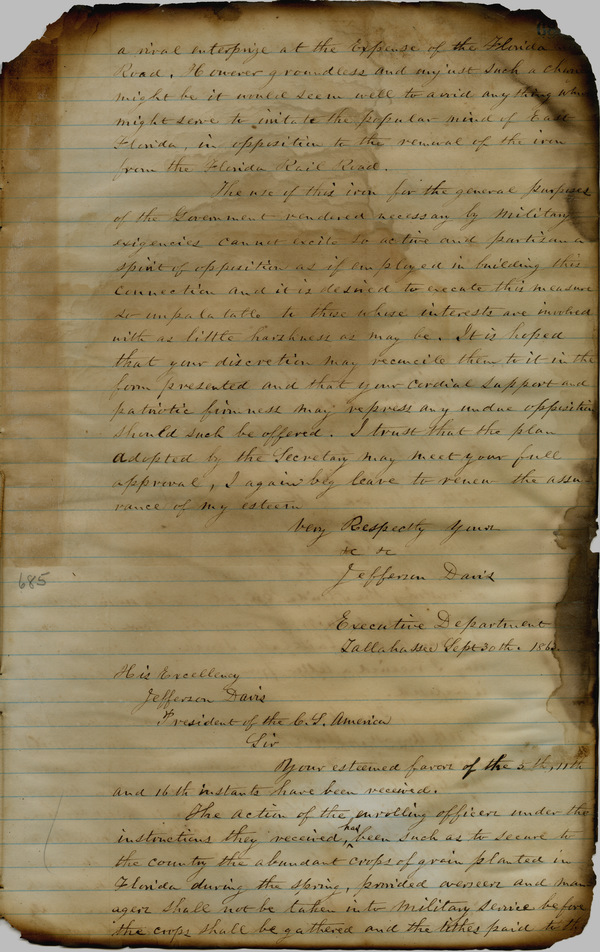 a rival enterprize at the Expense of the Florida
Road. However groundless and unjust such a
might be it would seem well to avoid any thing
might serve to irritate the popular mind of East
Florida, in opposition to the removal of the iron
from the Florida Rail Road.
The use of this iron for the general purposes
of the Government rendered necessary by military
exigencies cannot excite so active and partisan a
spirit of opposition as if employed in building this
connection and it is desired to execute this measure
so unpalatable to those whose interests are involved
with as little harshness as may be. It is hoped
that your discretion may reconcile them to it in the
form presented and that your cordial support and
patriotic firmness may repress any undue opposition
should such be offered. I trust that the plan
adopted by the Secretary may meet your full
approval, I again beg leave to renew the assu-
rance of my esteem
Very Respectly Yours
&c &c
Jefferson Davis
685
Executive Department
Tallahassee Sept 30th. 186
His Excellency
Jefferson Davis
President of the C. S. America
Sir
Your esteemed favors of the 5th, 11th
and 16th instants have been received.
The action of the enrolling officers under the
instructions they received, has been such as to secure to
the country the abundant crops of grain planted in
Florida during the spring, provided overseers and man
agers shall not be taken into military service before
the crops shall be gathered and the tithes paid to th